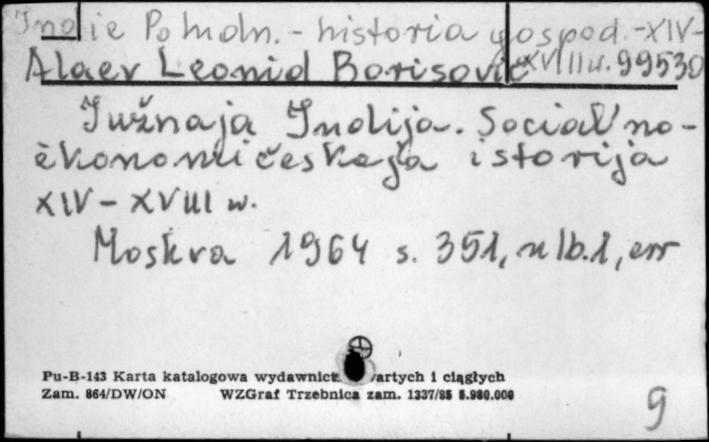 Indie Połudn. - historia gospod. - XIV-XVIII w. 99530
Alaev Leonid Borisovič
Južnaja Indija. Social'no-
èkonomičeskaja istorija
XIV - XVIII w.
Moskva 1964 s. 351, nlb. 1, err
Pu-B-143 Karta katalogowa wydawnict artych i ciągłych
Zam. 864/DW/ON WZGraf Trzebnica zam. 1337/85 5.980.000
9